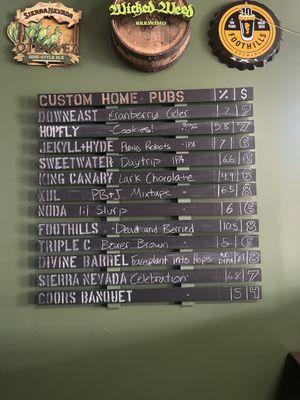 SIERRA NEVADA
Wicked Weed
BREWING
FOOTHILLS
CUSTOM HOME PUBS % $
DOWNEAST Cranberry Cider 7
HOPFLY Cookies! 5.8 7
JEKYLL+HYDE Robots IPA 7 6
SWEETWATER Daytrip IPA 4.6 6
KING CANARY Lark Chocolate 4.9 5
XUL PB+J Mixtape 6.5 8
NODA lil Slurp 6 6
FOOTHILLS Dead and Berried 10.5 8
TRIPLE C Boxer Brown 5 6
DIVINE BARREL Faceplant into Hops 8
SIERRA NEVADA Celebration 6.8 7
COORS BANQUET 5 4